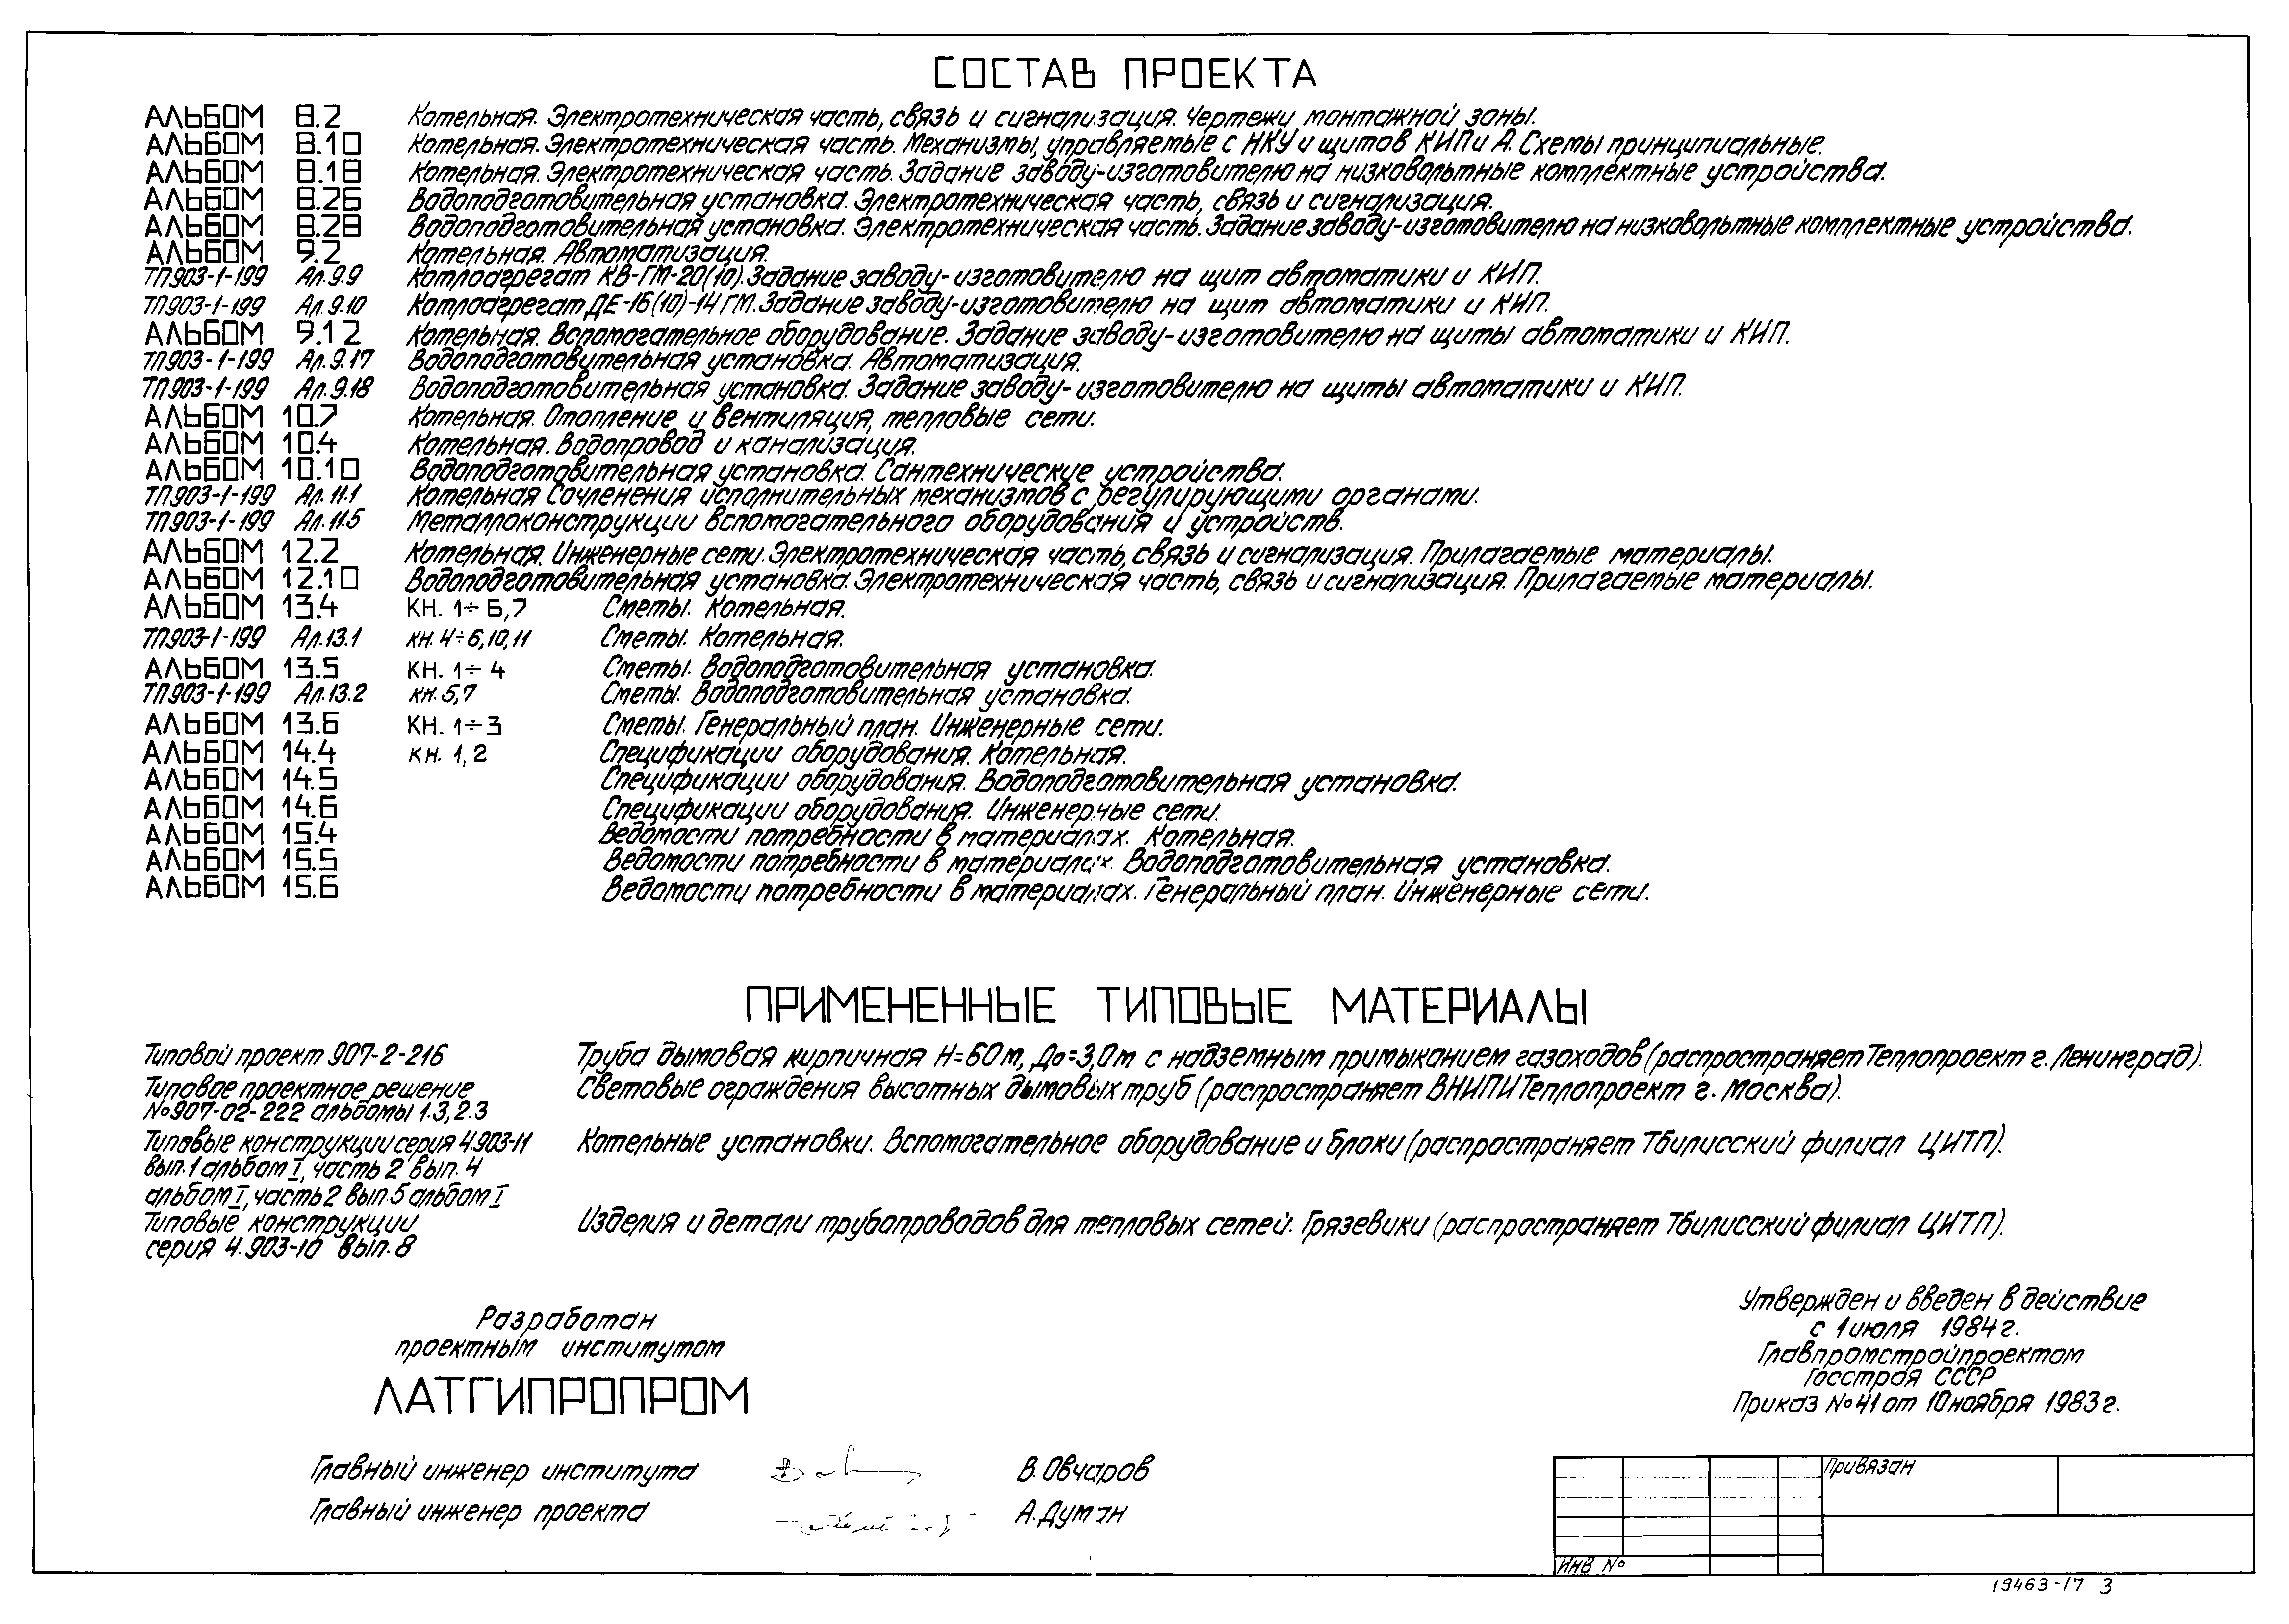 СОСТАВ ПРОЕКТА
АЛЬБОМ 8.2 Котельная. Электротехническая часть, связь и сигнализация. Чертежи монтажной зоны.
АЛЬБОМ 8.10 Котельная. Электротехническая часть. Механизмы, управляемые с НКУ и щитов КИП и А. Схемы принципиальные.
АЛЬБОМ 8.18 Котельная. Электротехническая часть. Задание заводу-изготовителю на низковольтные комплектные устройства.
АЛЬБОМ 8.26 Водоподготовительная установка. Электротехническая часть, связь и сигнализация.
АЛЬБОМ 8.28 Водоподготовительная установка. Электротехническая часть. Задание заводу-изготовителю на низковольтные комплектные устройства.
АЛЬБОМ 9.2 Котельная. Автоматизация.
ТП903-1-199 Ал. 9.9 Котлоагрегат КВ-ГМ-20(10). Задание заводу-изготовителю на щит автоматики и КИП.
ТП903-1-199 Ал. 9.10 Котлоагрегат ДЕ-16(10)-14 ГМ. Задание заводу-изготовителю на щит автоматики и КИП.
АЛЬБОМ 9.12 Котельная. Вспомогательное оборудование. Задание заводу-изготовителю на щиты автоматики и КИП.
ТП903-1-199 Ал. 9.17 Водоподготовительная установка. Автоматизация.
ТП903-1-199 Ал. 9.18 Водоподготовительная установка. Задание заводу-изготовителю на щиты автоматики и КИП.
АЛЬБОМ 10.7 Котельная. Отопление и вентиляция, тепловые сети.
АЛЬБОМ 10.4 Котельная. Водопровод и канализация.
АЛЬБОМ 10.10 Водоподготовительная установка. Сантехнические устройства.
ТП903-1-199 Ал. 11.1 Котельная Сочленения исполнительных механизмов с регулирующими органами.
ТП903-1-199 Ал. 11.5 Металлоконструкции вспомогательного оборудования и устройств.
АЛЬБОМ 12.2 Котельная. Инженерные сети. Электротехническая часть, связь и сигнализация. Прилагаемые материалы.
АЛЬБОМ 12.10 Водоподготовительная установка. Электротехническая часть, связь и сигнализация. Прилагаемые материалы.
АЛЬБОМ 13.4 КН. 1÷6,7 Сметы. Котельная.
ТП903-1-199 Ал. 13.1 кн. 4÷6,10,11 Сметы. Котельная.
АЛЬБОМ 13.5 КН. 1÷4 Сметы. Водоподготовительная установка.
ТП903-1-199 Ал. 13.2 кн. 5,7 Сметы. Водоподготовительная установка.
АЛЬБОМ 13.6 КН. 1÷3 Сметы. Генеральный план. Инженерные сети.
АЛЬБОМ 14.4 КН. 1,2 Спецификации оборудования. Котельная.
АЛЬБОМ 14.5 Спецификации оборудования. Водоподготовительная установка.
АЛЬБОМ 14.6 Спецификации оборудования. Инженерные сети.
АЛЬБОМ 15.4 Ведомости потребности в материалах. Котельная.
АЛЬБОМ 15.5 Ведомости потребности в материалах. Водоподготовительная установка.
АЛЬБОМ 15.6 Ведомости потребности в материалах. Генеральный план. Инженерные сети.
ПРИМЕНЕННЫЕ ТИПОВЫЕ МАТЕРИАЛЫ
Типовой проект 907-2-216 Труба дымовая кирпичная Н=60м, До=3,0м с надземным примыканием газоходов (распространяет Теплопроект г. Ленинград).
Типовое проектное решение Световые ограждения высотных дымовых труб (распространяет ВНИПИТеплопроект г. Москва).
№907-02-222 альбомы 1.3, 2.3
Типовые конструкции серия 4.903-11 Котельные установки. Вспомогательное оборудование и блоки (распространяет Тбилисский филиал ЦИТП).
вып. 1 альбом I, часть 2 вып. 4
альбом I, часть 2 вып. 5 альбом I
Типовые конструкции Изделия и детали трубопроводов для тепловых сетей. Грязевики (распространяет Тбилисский филиал ЦИТП).
серия 4.903-10 вып. 8
Разработан
проектным институтом
ЛАТГИПРОПРОМ
Главный инженер института В. Овчаров
Главный инженер проекта А. Думан
Утвержден и введен в действие
с 1 июля 1984 г.
Главпромстройпроектом
Госстроя СССР
Приказ №41 от 10 ноября 1983 г.
Привязан
ИНВ №
19463-17 3